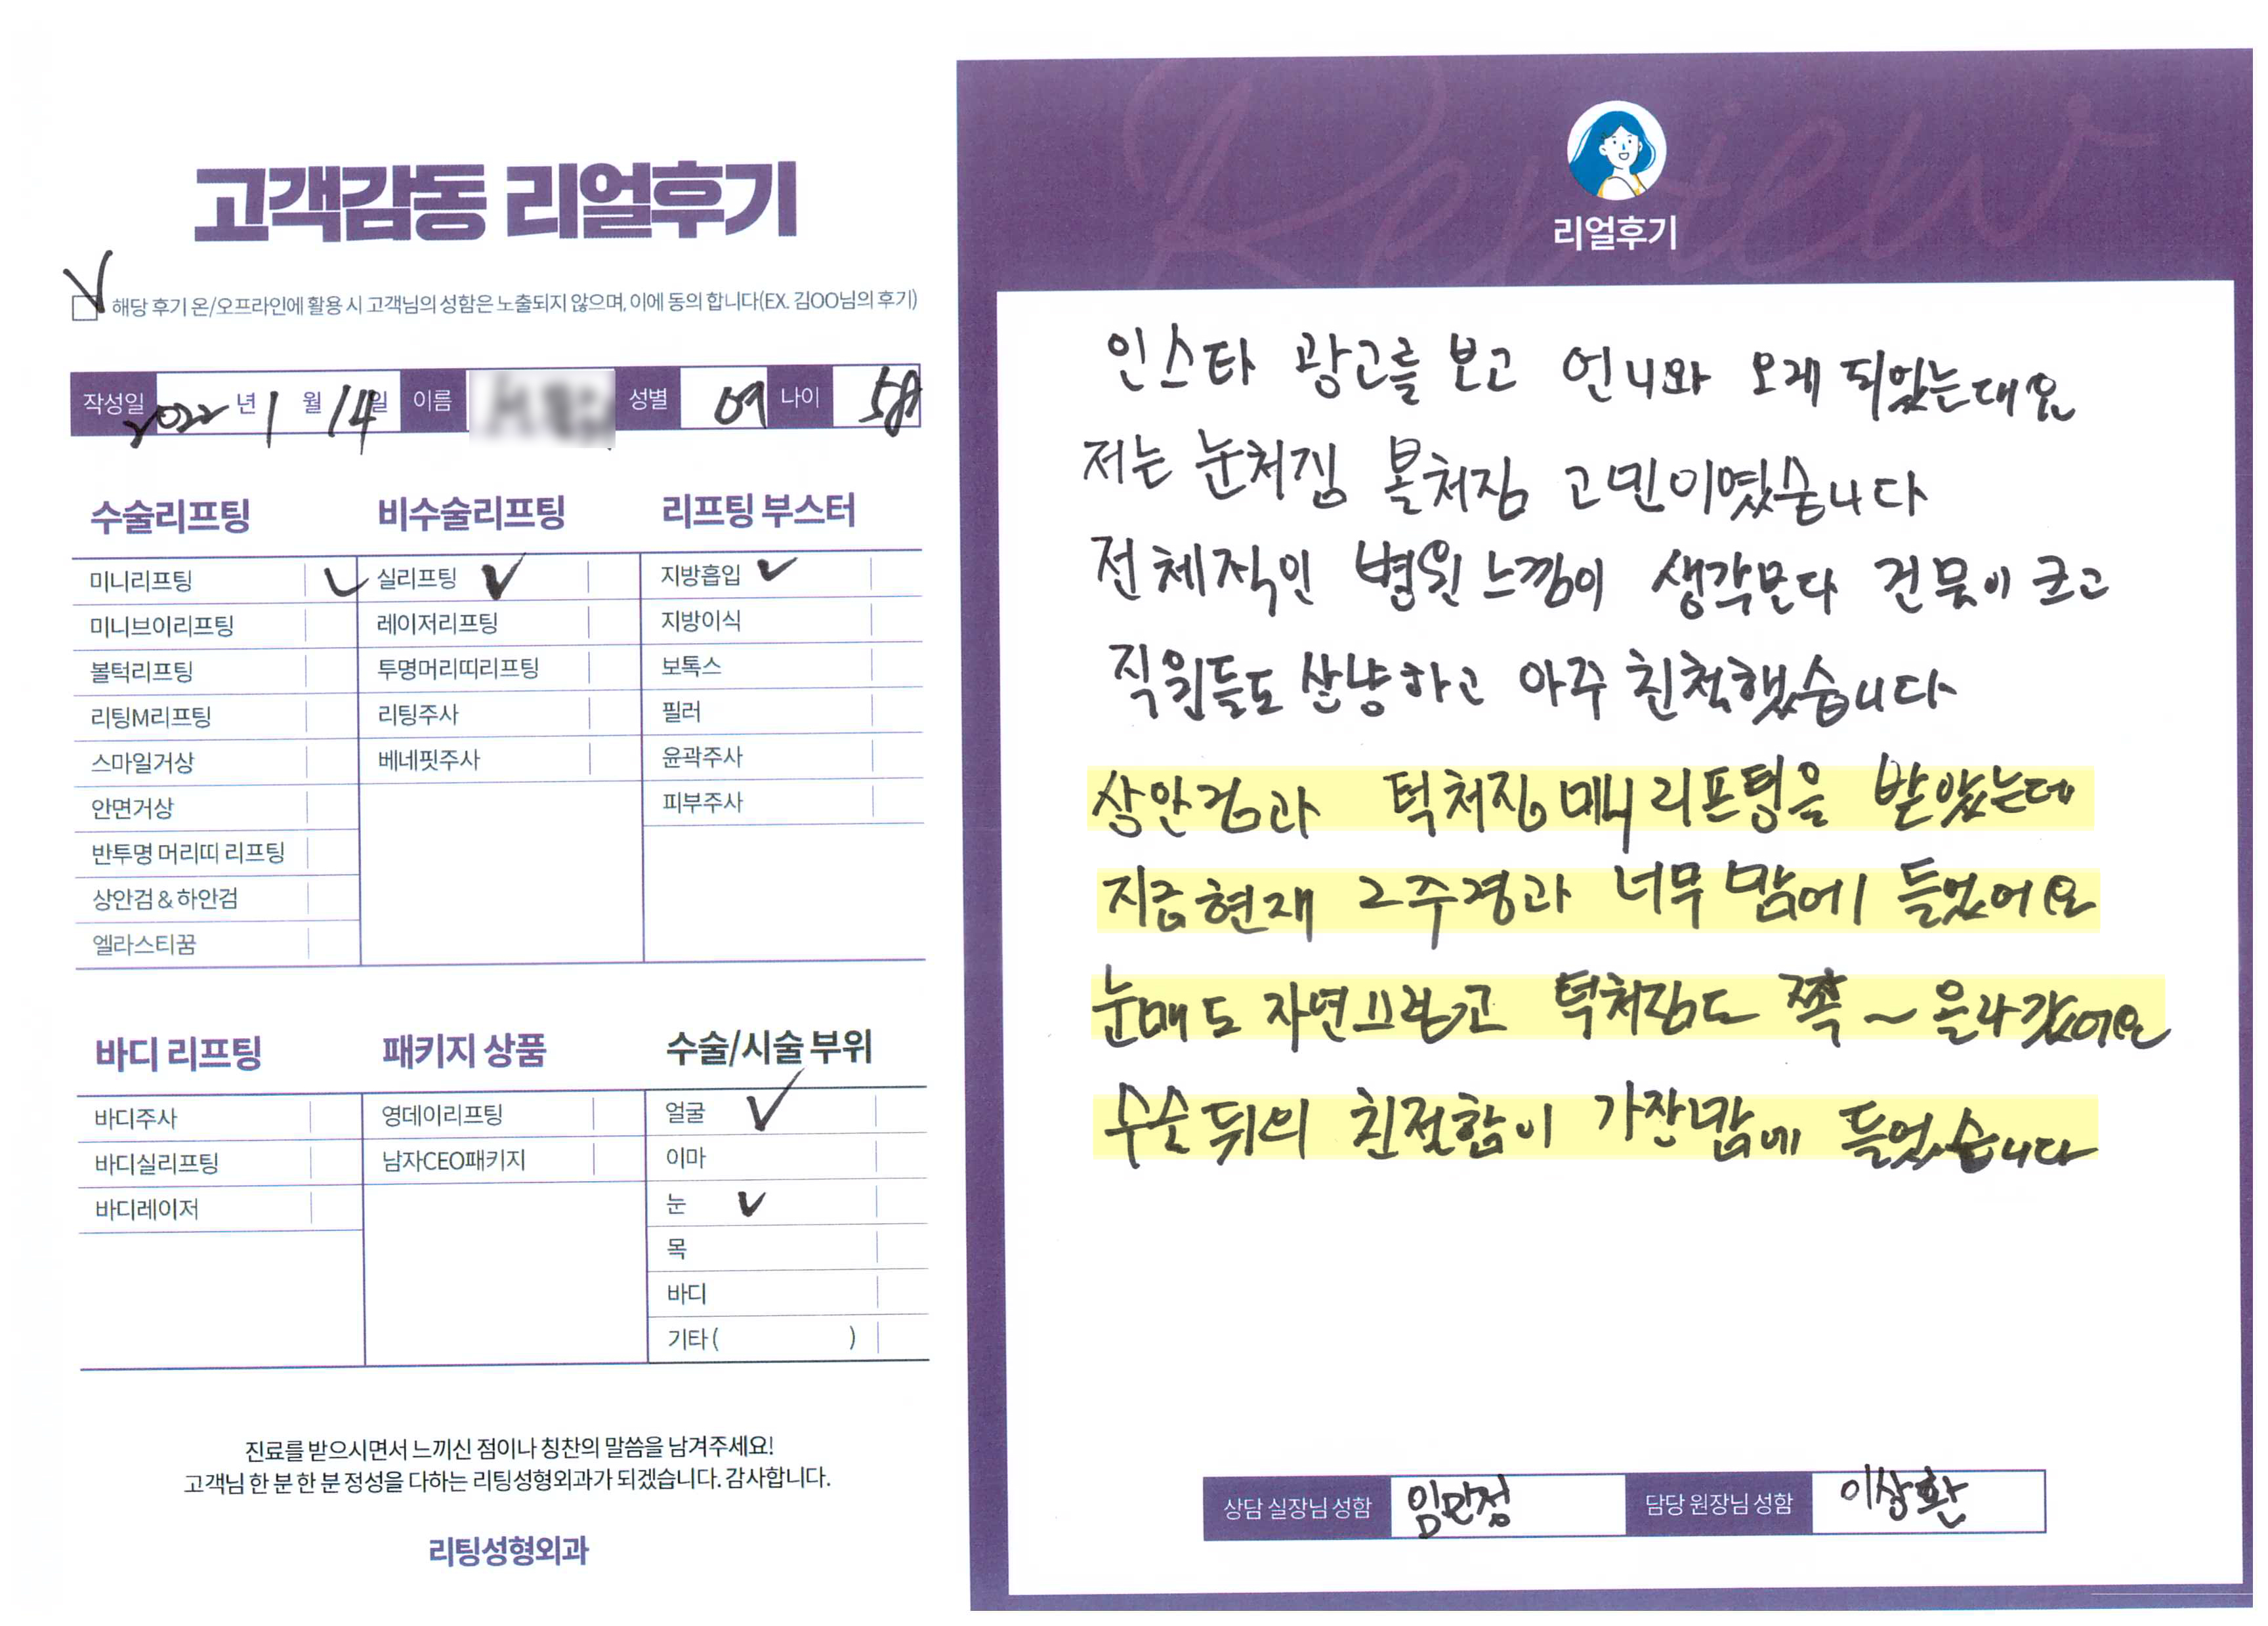 고객감동 리얼후기
해당 후기 온/오프라인에 활용 시 고객님의 성함은 노출되지 않으며, 이에 동의 합니다(EX. 김OO님의 후기)
작성일 2022 년 1 월 14 일 이름 성별 여 나이 58
수술리프팅
미니리프팅
미니브이리프팅
볼턱리프팅
리팅M리프팅
스마일거상
안면거상
반투명 머리띠 리프팅
상안검 & 하안검
엘라스티꿈
비수술리프팅
실리프팅
레이저리프팅
투명머리띠리프팅
리팅주사
베네핏주사
리프팅 부스터
지방흡입
지방이식
보톡스
필러
윤곽주사
피부주사
바디 리프팅
바디주사
바디실리프팅
바디레이저
패키지 상품
영데이리프팅
남자CEO패키지
수술/시술 부위
얼굴
이마
눈
목
바디
기타 ( )
진료를 받으시면서 느끼신 점이나 칭찬의 말씀을 남겨주세요!
고객님 한 분 한 분 정성을 다하는 리팅성형외과가 되겠습니다. 감사합니다.
리팅성형외과
Review
리얼후기
인스타 광고를 보고 언니와 오게 되었는대요
저는 눈처짐 볼처짐 고민이였습니다
전체적인 병원 느낌이 생각보다 건물이 크고
직원들도 상냥하고 아주 친척했습니다
상안검과 턱처짐 미니리프팅을 받았는데
지금현재 2주경과 너무 맘에 들었어요
눈매도 자연스럽고 턱처짐도 쫙~올라갔어요
수술 뒤의 친절함이 가장맘에 들었습니다
상담 실장님 성함 임민정 담당 원장님 성함 이상환